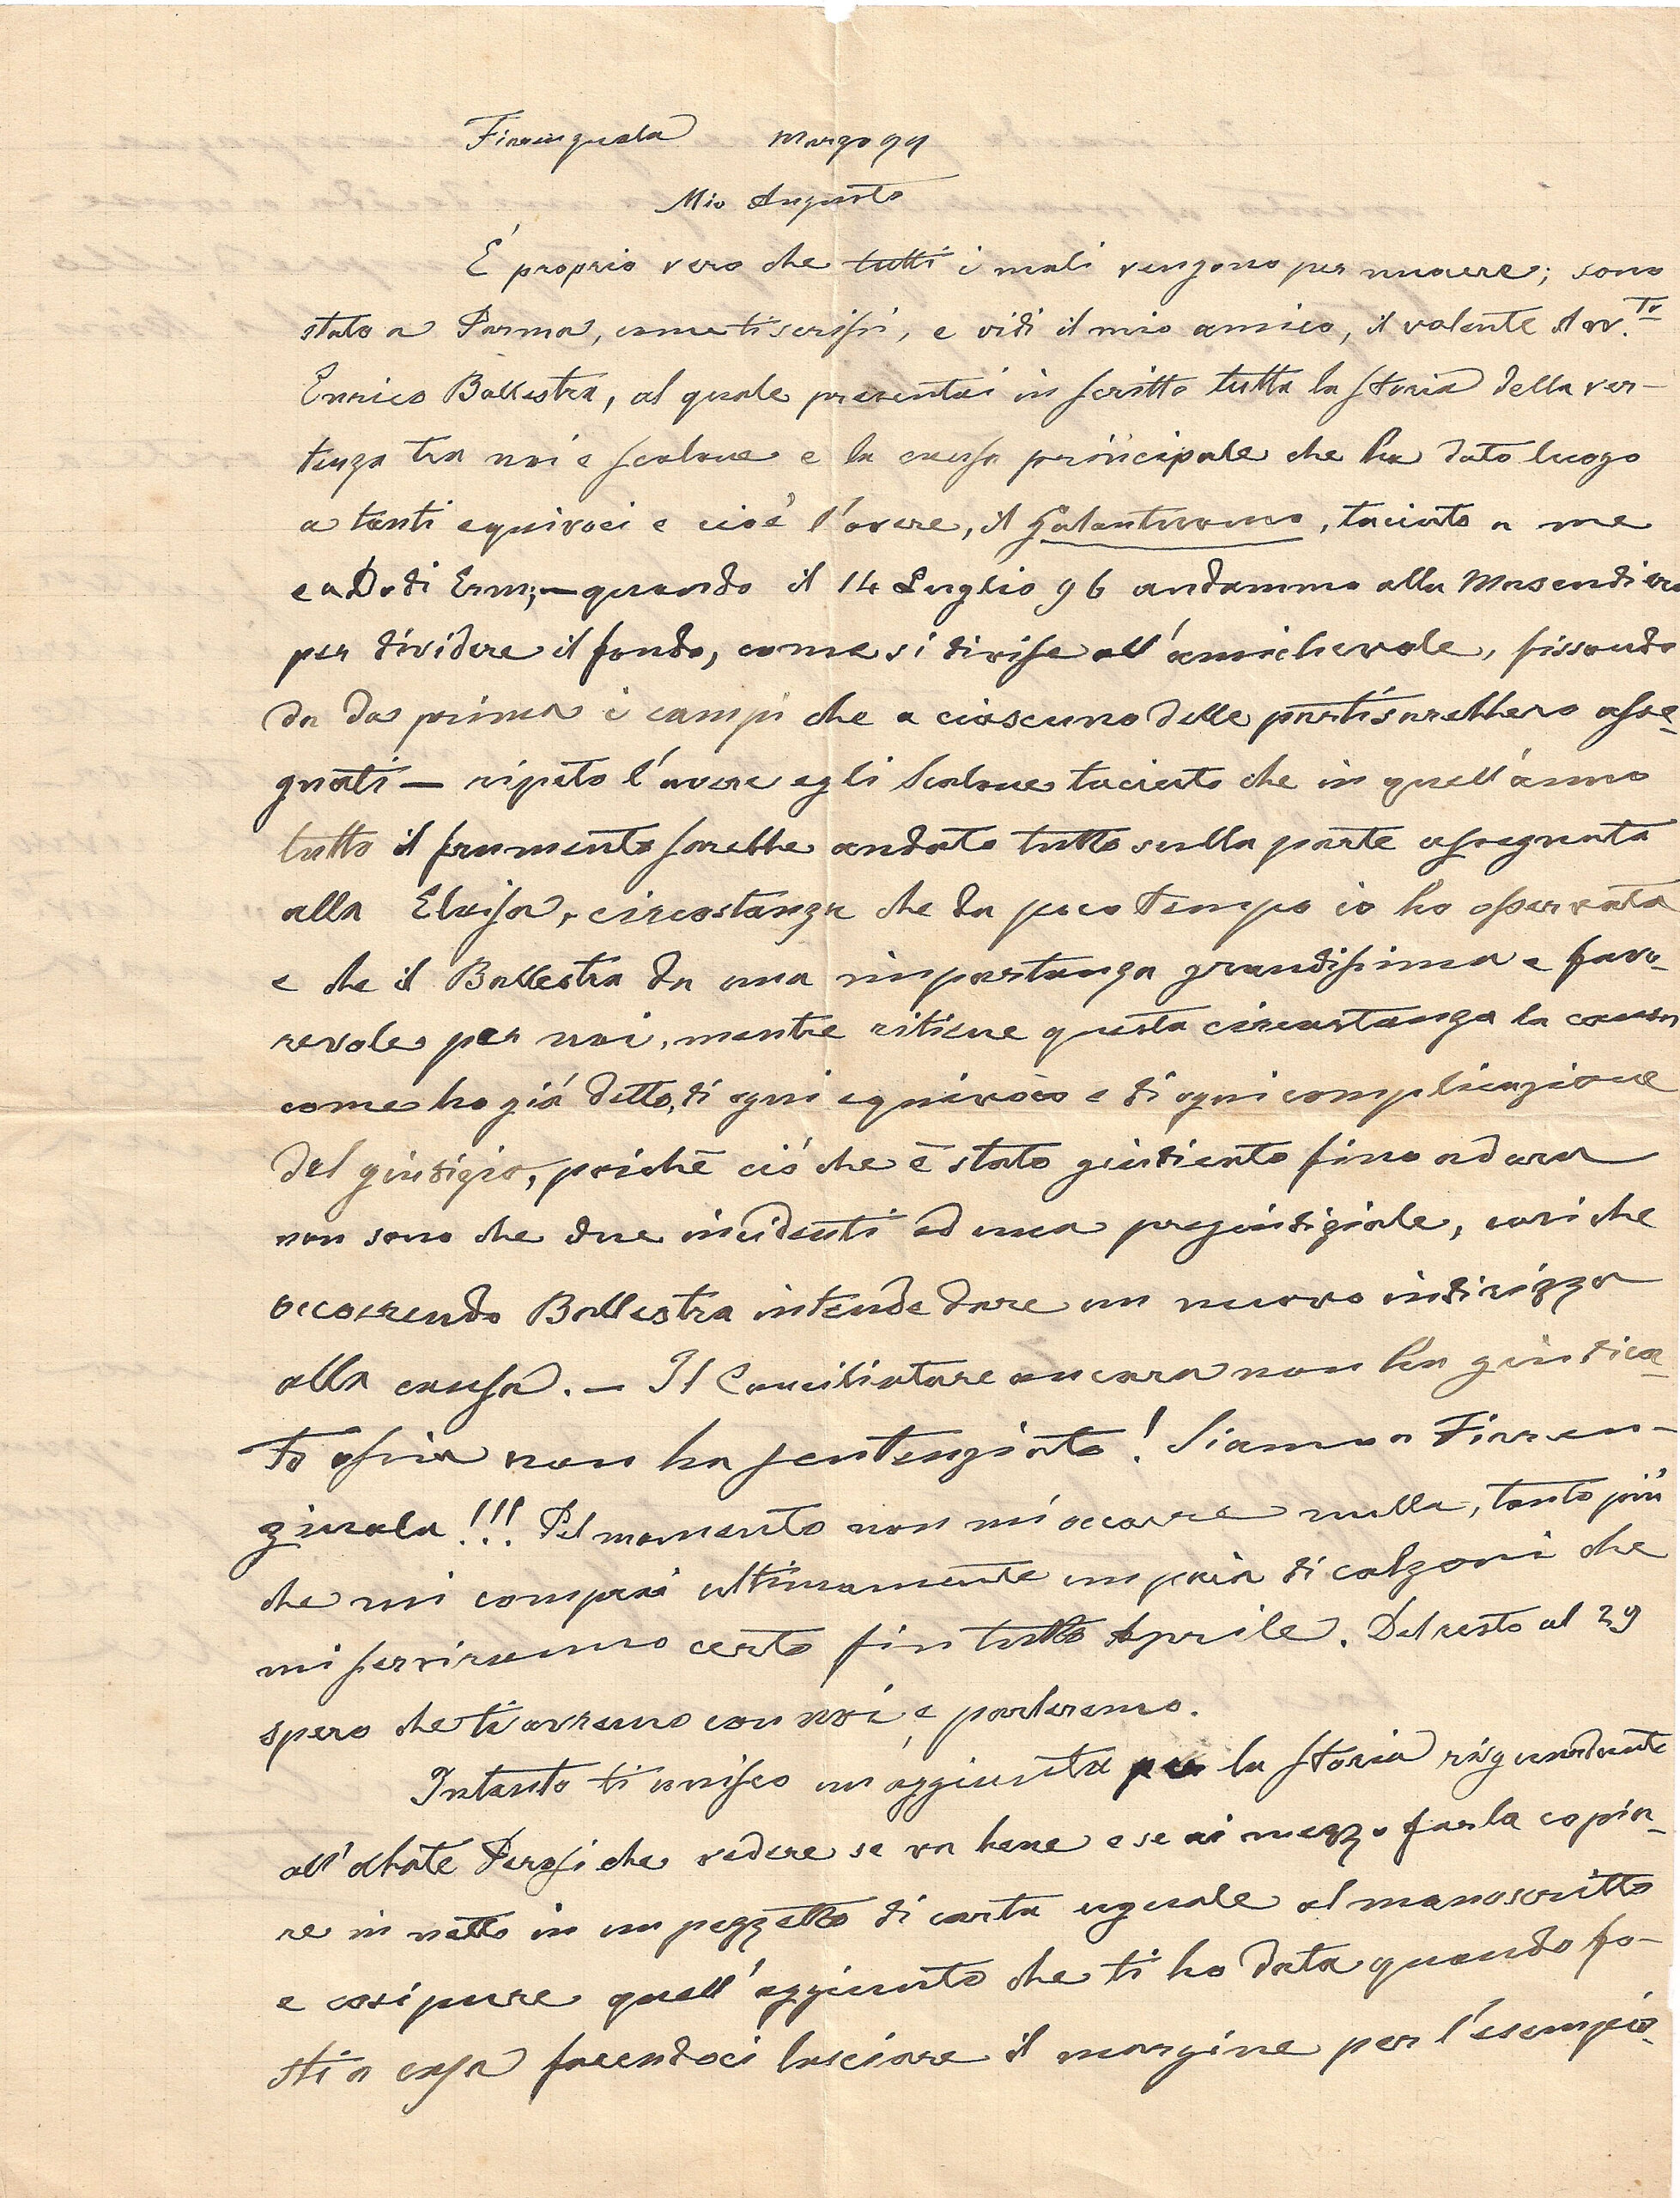 Fiorenzuola Marzo 99
Mio Augusto
È proprio vero che tutti i mali vengono per nuocere; sono
stato a Parma, come ti scrissi, e vidi il mio amico, il valente Avv.to
Enrico Ballestra, al quale presentai in scritto tutta la storia della ver-
tenza tra noi e Scalone e la causa principale che ha dato luogo
a tanti equivoci e cioè l'avere, il Galantuomo, taciuto a me
e a Dodi Erm; — quando il 14 Luglio 96 andammo alla
per dividere il fondo, come si divise all'amichevole, fissando
da da prima i campi che a ciascuno delle parti sarebbero asse-
gnati — ripeto l'avere egli Scalone taciuto che in quell'anno
tutto il frumento sarebbe andato tutto sulla parte assegnata
alla Eloisa, circostanza che da poco tempo io ho osservata
e che il Ballestra da una importanza grandissima e favo-
revole per noi, mentre ritiene questa circostanza la causa
come ho già detto, di ogni equivoco e di ogni complicazione
del giudizio, poichè ciò che è stato giudicato fino ad ora
non sono che due incidenti ed una pregiudiziale, cosi che
occorrendo Ballestra intende dare un nuovo indirizzo
alla causa. — Il Conciliatore ancora non ha giudica-
to ossia non ha sentenziato! Siamo a Fioren-
zuola!!! Pel momento non mi occorre nulla, tanto più
che mi comprai ultimamente un paia di calzoni che
mi serviranno certo fin tutto Aprile. Del resto al 29
spero che ti avremo con noi e parleremo.
Intanto ti unisco un'aggiunta per la storia risguardante
all'abate Perosi che vedere se va bene e se ai mezzo farla copia-
re in netto in un pezzetto di carta uguale al manoscritto
e cosi pure quell'aggiunta che ti ho data quando fo-
sti a casa facendoci lasciare il margine per l'esempio-